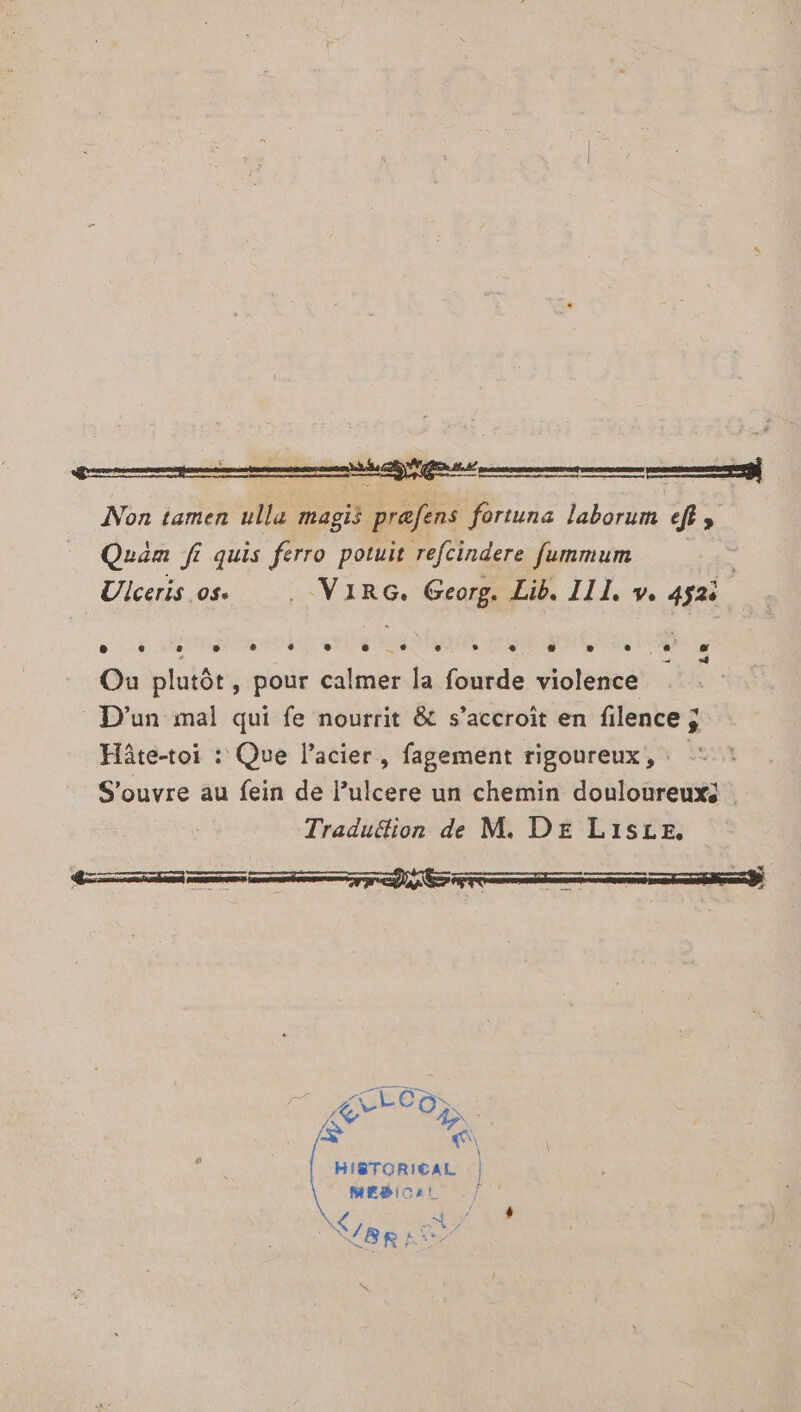 Non tamen ulla magis præſens fortuna laborum eſt,
Quàm ſi quis ferro potuit reſcindere ſummum
Ulceris os. VIRG. Georg. Lib. III. v. 452.
Ou plutôt, pour calmer la ſourde violence
D'un mal qui ſe nourrit & s'accroît en ſilence;
Hâte-toi : Que l'acier, ſagement rigoureux,
S'ouvre au ſein de l'ulcere un chemin douloureux.
Traduction de M. DE LISLE.
WELLCOME
HISTORICAL
MEDICAL
LIBRARY